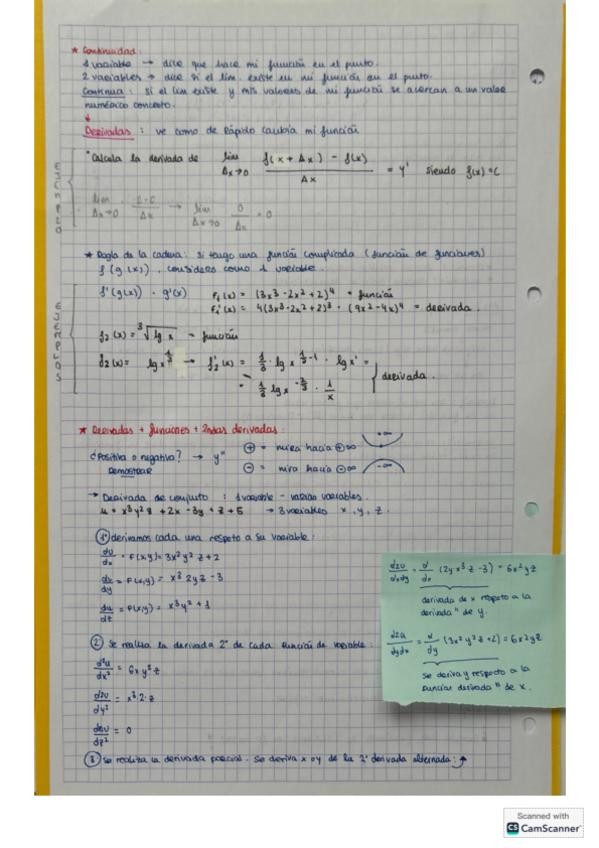 * Continuidad:
1 variable → dice que hace mi función en el punto.
2 variables → dice si el lim. existe en mi función en el punto.
Continua: si el lim existe y mis valores de mi función se acercan a un valor
numérico concreto.
↓
Derivadas: ve como de rápido cambia mi función
EJEMPLO
• Calcula la derivada de lim Δx→0 f(x + Δx) - f(x) / Δx = y' siendo f(x) = C
lim Δx→0 C-C / Δx → lim Δx→0 0 / Δx = 0
* Regla de la cadena: si tengo una función complicada (función de funciones)
f(g(x)), considero como 1 variable.
EJEMPLOS
f'(g(x)) · g'(x) f₁(x) = (3x³-2x²+2)⁴ = función
f₁'(x) = 4(3x³-2x²+2)³ · (9x²-4x)⁴ = derivada.
f₂(x) = ³√lg x = función
f₂(x) = lg x^1/3 → f₂'(x) = 1/3 · lg x^1/3-1 · lg x' =
= 1/3 lg x^-2/3 · 1/x } derivada.
* Derivadas + funciones + 2ndas derivadas:
¿Positiva o negativa? → y''
DEMOSTRAR
⊕ = mira hacia ⊕∞ +∞
⊖ = mira hacia ⊖∞ -∞
→ Derivada de conjunto: 1 variable - varias variables.
u = x³y²z + 2x - 3y + z + 5 → 3 variables x, y, z.
1º derivamos cada una respeto a su variable:
du/dx = F(x,y) = 3x²y²z + 2
du/dy = F(x,y) = x³2yz - 3
du/dz = F(x,y) = x³y² + 1
2 Se realiza la derivada 2ª de cada función de variable:
d²u/dx² = 6xy²z
d²u/dy² = x³·2·z
d²u/dz² = 0
3 Se realiza la derivada parcial. Se deriva x o y de la 2ª derivada alternada: ↗
d²u/dxdy = d/dx (2yx³z-3) = 6x²yz
derivada de x respeto a la
derivada " de y.
d²u/dydx = d/dy (3x²y²z+2) = 6x²yz
se deriva y respecto a la
función derivada " de x.
Scanned with
CS CamScanner